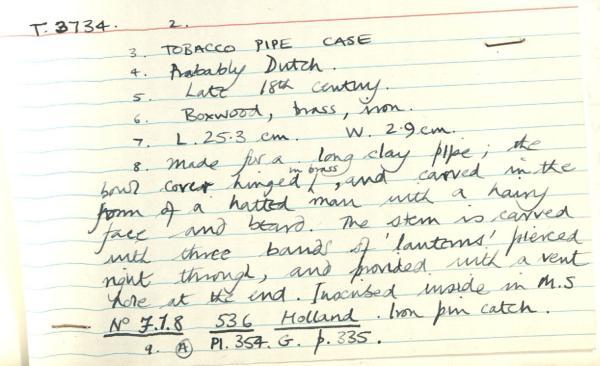 T. 3734. 2.
3. TOBACCO PIPE CASE
4. Probably Dutch.
5. Late 18th century.
6. Boxwood, brass, iron.
7. L. 25.3 cm. W. 2.9 cm.
8. Made for a long clay pipe; the
bowl cover hinged in brass, and carved in the
form of a hatted man with a hairy
face and beard. The stem is carved
with three bands of 'lanterns' pierced
right through, and provided with a vent
hole at the end. Inscribed inside in M.S
No 7.1.8 536 Holland. Iron pin catch.
9. A Pl. 354. G. p. 335.